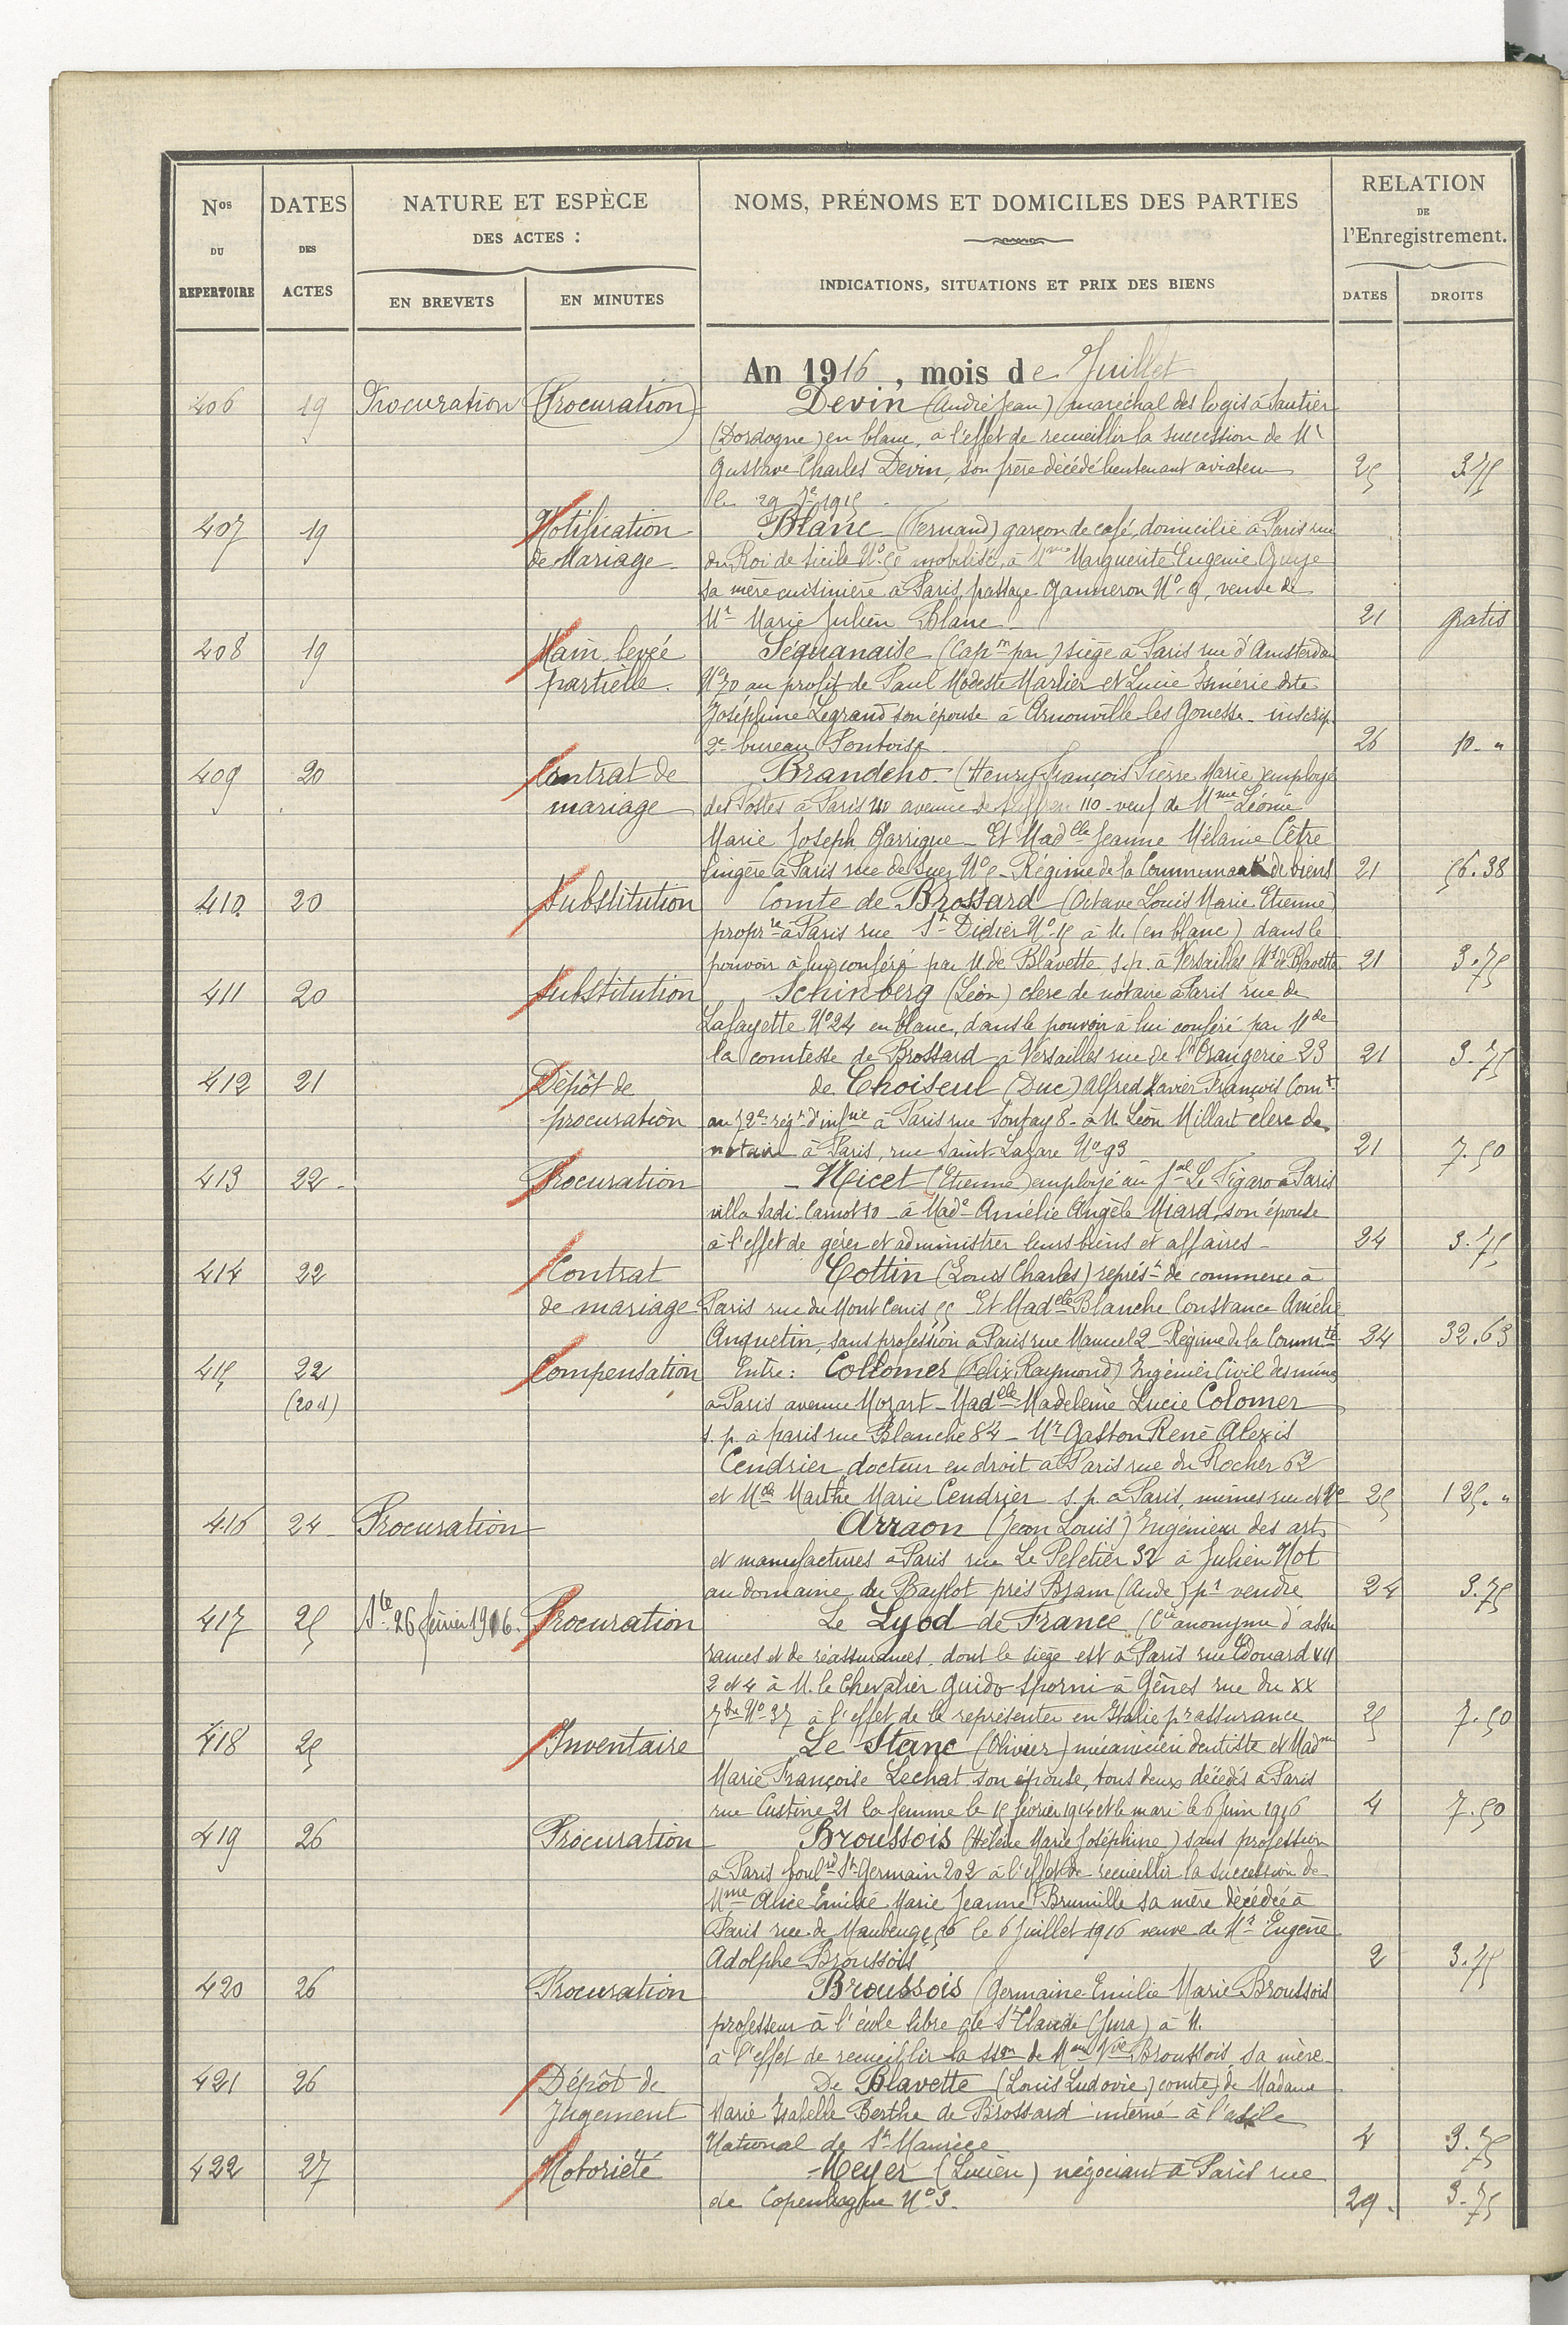 Nos DU REPERTOIRE
DATES DES ACTES
NATURE ET ESPÈCE DES ACTES :
EN BREVETS
EN MINUTES
NOMS, PRÉNOMS ET DOMICILES DES PARTIES
INDICATIONS, SITUATIONS ET PRIX DES BIENS
RELATION DE l'Enregistrement.
DATES
DROITS
An 1916, mois de Juillet
406 19 Procuration (Procuration) Devin (André Jean) maréchal des logis à
(Dordogne) en blanc, à l'effet de recueillir la succession de Mr
Gustave Charles Devin, son frère décédé lieutenant aviateur 25 3.75
le 29 1915
407 19 Notification Blanc (Fernand) garçon de café, domicilié à Paris rue
de Mariage du Roi de Sicile No 55 mobilisé, à Mme Marguerite Eugénie
sa mère cuisinière à Paris, passage Ganneron No 9, veuve de
Mr Marie Julien Blanc 21 gratis
408 19 Main levée Séquanaise (Capon par) siège à Paris rue d'Amsterdam
partielle. No 70 au profit de Paul Modeste Marlier et Lucie Isménie dite
Joséphine Legrand son épouse à Arnouville les Gonesse - inscrip.
2e bureau Pontoise 26 10 "
409 20 Contrat de Brandcho (Henry François Pierre Marie) employé
mariage des Postes à Paris avenue de Suffren 110 - veuf de Mme Léonie
Marie Joseph Garrigue - Et Madelle Jeanne Mélanie Cêtre
lingère à Paris rue de Suez No 5 - Régime de la Communauté de biens 21 56.38
410 20 Substitution Comte de Brossard (Octave Louis Marie Etienne)
proprre à Paris rue St Didier No 15 à M. (en blanc) dans le
pouvoir à lui conféré par M. de Blavette s.p. à Versailles 21 3.75
411 20 Substitution Schinberg (Léon) clerc de notaire à Paris rue de
Lafayette No 24 en blanc, dans le pouvoir à lui conféré par Mde
la comtesse de Brossard à Versailles rue de l'Orangerie 23 21 3.75
412 21 Dépôt de de Choiseul (Duc) Alfred Xavier François
procuration régt d'infrie à Paris rue Sontay 8 - à M. Léon Millart clerc de
notaire à Paris, rue Saint-Lazare No 93 21 7.50
413 22 - Procuration - Nicet (Etienne) employé au Jal Le Figaro à Paris
villa Sadi-Carnot 10 - à Made Amélie Angèle Miard, son épouse
à l'effet de gérer et administrer leurs biens et affaires 24 3.75
414 22 Contrat Cottin (Louis Charles) représt de commerce à
de mariage Paris rue du Mont Cenis 55 Et Madelle Blanche Constance Amélie
Anquetin, sans profession à Paris rue Manuel 2 - Régime de la Commté 24 32.63
415 22 Compensation Entre : Collomer (Félix Raymond) Ingénieur Civil des mines
(20 d) à Paris avenue Mozart - Madelle Madeleine Lucie Colomer
s.p. à paris rue Blanche 84 - Mr Gaston René Alexis
Cendrier docteur en droit à Paris rue du Rocher 62
et Mde Marthe Marie Cendrier s.p. à Paris, mêmes rue et No 25 125. "
416 24 Procuration Arraon (Jean Louis) Ingénieur des arts
et manufactures à Paris rue Le Peletier 32 à Julien Not
au domaine du Baylot près Bram (Aude) pr vendre 24 3.75
417 25 26 février 1916. Procuration Le Lyod de France (Cie anonyme d'assu
rances et de réassurances, dont le siège est à Paris rue Edouard VII
2 et 4 à M. le Chevalier Guido Sporni à Gênes rue du XX
7bre No 37 à l'effet de le représenter en Italie pr assurance 25 7.50
418 25 Inventaire Le Stanc (Olivier) mécanicien dentiste et Madme
Marie Françoise Lechat son épouse, tous deux décédés à Paris
rue Custine 21 la femme le 15 février 1914 et le mari le 6 juin 1916 4 7.50
419 26 Procuration Broussois (Hélène Marie Joséphine) sans profession
à Paris boulrd St Germain 202 à l'effet de recueillir la succession de
Mme Alice Emilie Marie Jeanne Brumille sa mère décédée à
Paris rue de Maubeuge 56 le 6 juillet 1916 veuve de Mr Eugène
Adolphe Broussois 2 3.75
420 26 Procuration Broussois (Germaine Emilie Marie Broussois
professeur à l'école libre de St Claude (Jura) à M.
à l'effet de recueillir la sson de Mme Vve Broussois, sa mère
421 26 Dépôt de De Blavette (Louis Ludovic) comte) de Madame
Jugement Marie Isabelle Berthe de Brossard interné à l'asile
National de St Maurice 4 3.75
422 27 Notoriété - Meyer (Lucien) négociant à Paris rue
de Copenhague No 3. 29. 3.75